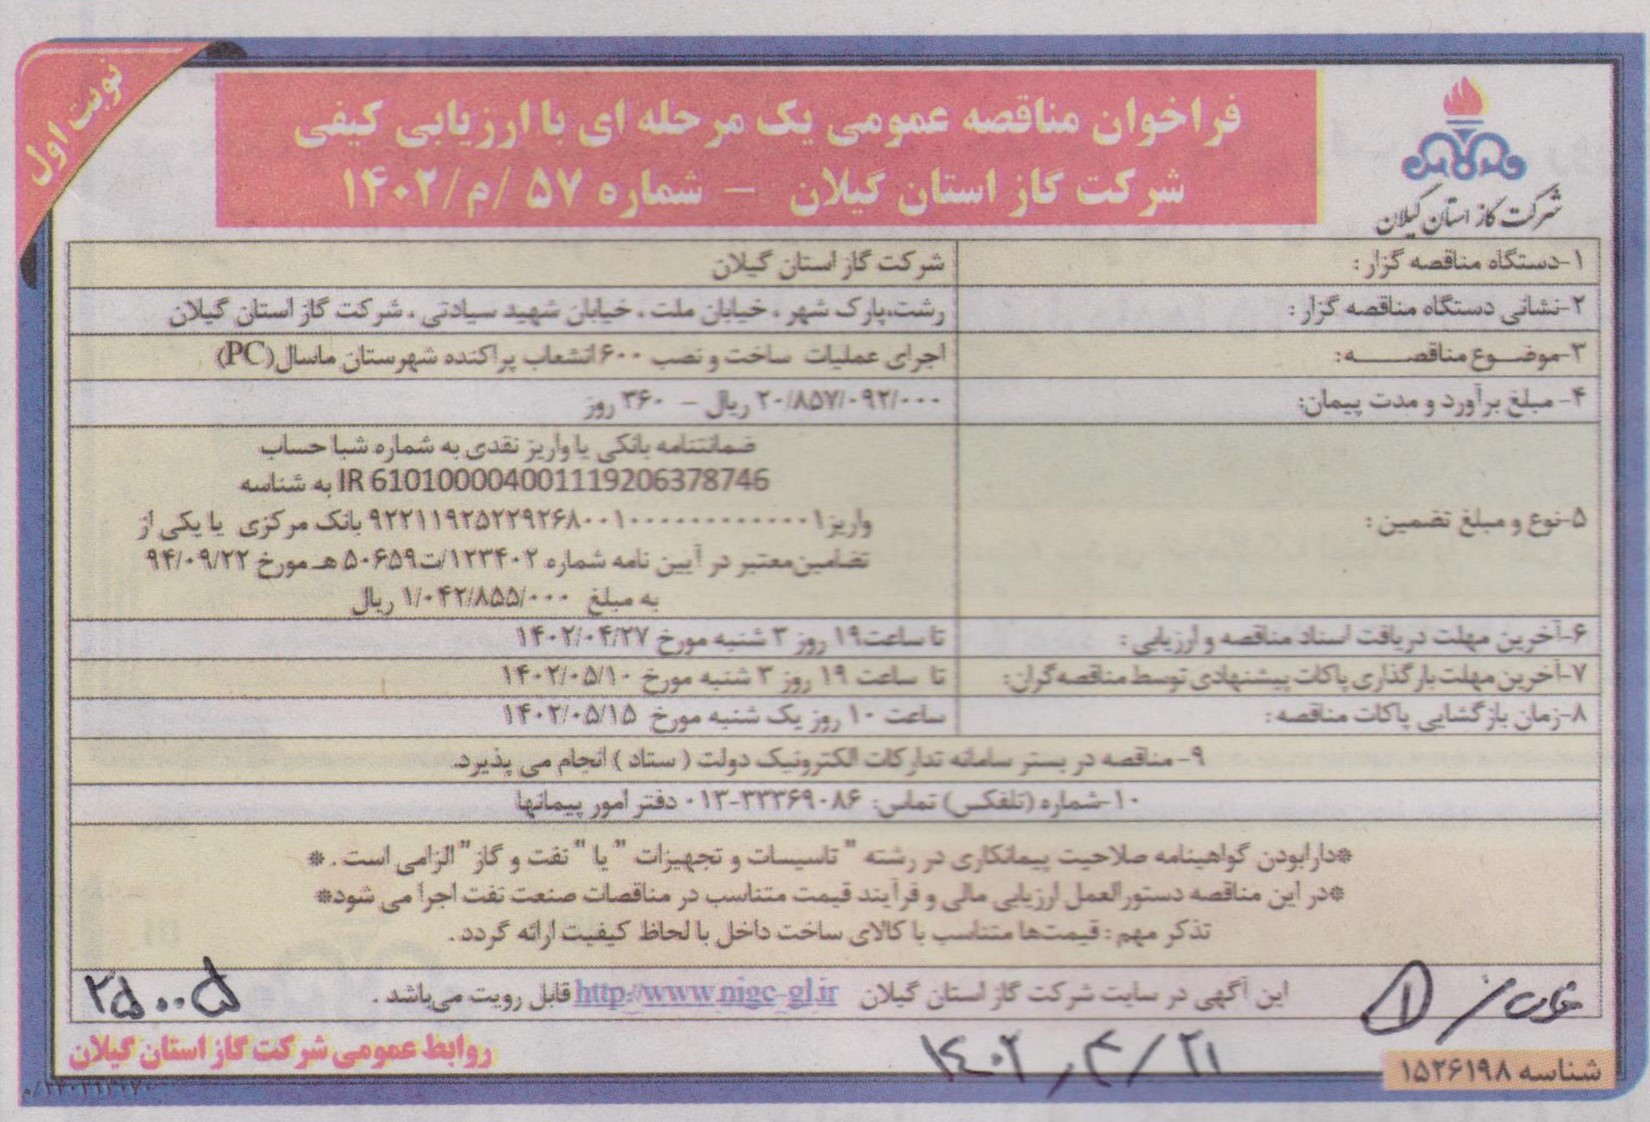 نوبت اول
فراخوان مناقصه عمومی یک مرحله ای با ارزیابی کیفی
شرکت گاز استان گیلان – شماره ۵۷ /م/۱۴۰۲
شرکت گاز استان گیلان
۱-دستگاه مناقصه گزار: شرکت گاز استان گیلان
۲-نشانی دستگاه مناقصه گزار: رشت،پارک شهر ، خیابان ملت ، خیابان شهید سیادتی ، شرکت گاز استان گیلان
۳-موضوع مناقصه: اجرای عملیات ساخت و نصب ۶۰۰انشعاب پراکنده شهرستان ماسال(PC)
۴- مبلغ برآورد و مدت پیمان: ۲۰/۸۵۷/۰۹۲/۰۰۰ ریال – ۳۶۰ روز
۵-نوع و مبلغ تضمین :
ضمانتنامه بانکی یا واریز نقدی به شماره شبا حساب
IR 610100004001119206378746 به شناسه
بانک مرکزی یا یکی از
تضامین‌معتبر در آیین نامه شماره ۱۲۳۴۰۲/ت۵۰۶۵۹ هـ مورخ ۹۴/۰۹/۲۲
به مبلغ ۱/۰۴۲/۸۵۵/۰۰۰ ریال
۶-آخرین مهلت دریافت اسناد مناقصه و ارزیابی : تا ساعت۱۹ روز ۳ شنبه مورخ ۱۴۰۲/۰۴/۲۷
۷-آخرین مهلت‌بارگذاری پاکات پیشنهادی توسط مناقصه‌گران: تا ساعت ۱۹ روز ۳ شنبه مورخ ۱۴۰۲/۰۵/۱۰
۸-زمان بازگشایی پاکات مناقصه: ساعت ۱۰ روز یک شنبه مورخ ۱۴۰۲/۰۵/۱۵
۹- مناقصه در بستر سامانه تدارکات الکترونیک دولت ( ستاد ) انجام می پذیرد.
۱۰-شماره (تلفکس) تماس: ۰۱۳-۳۳۳۶۹۰۸۶ دفتر امور پیمانها
*دارابودن گواهینامه صلاحیت پیمانکاری در رشته " تاسیسات و تجهیزات " یا " نفت و گاز" الزامی است . *
*در این مناقصه دستورالعمل ارزیابی مالی و فرآیند قیمت متناسب در مناقصات صنعت نفت اجرا می شود*
تذکر مهم : قیمت‌ها متناسب با کالای ساخت داخل با لحاظ کیفیت ارائه گردد .
این آگهی در سایت شرکت گاز استان گیلان http://www.nigc-gl.ir قابل رویت می‌باشد .
۲۵۰۰۵
روابط عمومی شرکت گاز استان گیلان
۱۴۰۲/۴/۲۱
شناسه ۱۵۲۶۱۹۸